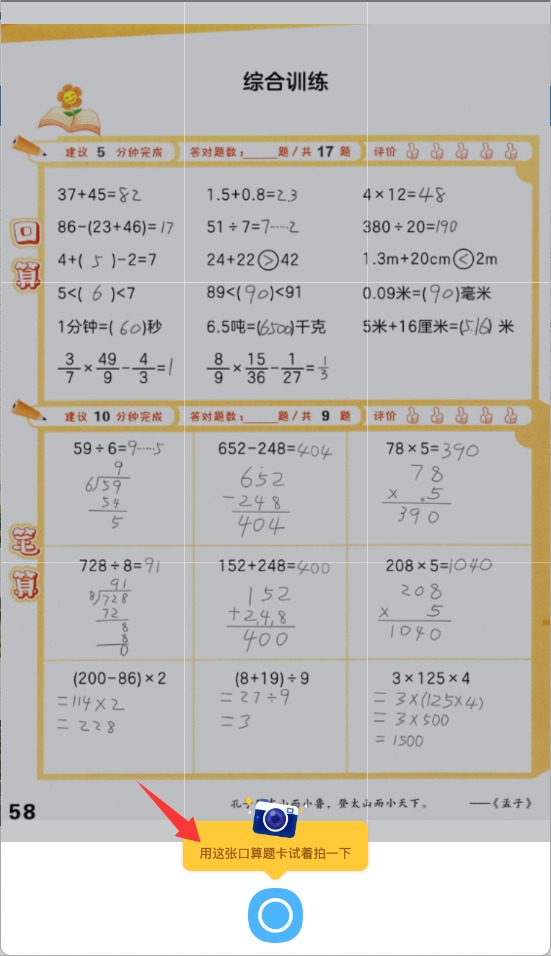 综合训练
建议 5 分钟完成 答对题数：____题/共 17 题 评价
口算
37+45=82 1.5+0.8=2.3 4×12=48
86-(23+46)=17 51÷7=7……2 380÷20=190
4+( 5 )-2=7 24+22>42 1.3m+20cm<2m
5<( 6 )<7 89<(90)<91 0.09米=(90)毫米
1分钟=( 60)秒 6.5吨=(6500)千克 5米+16厘米=(5.16) 米
3/7×49/9-4/3=1 8/9×15/36-1/27=1/3
建议 10 分钟完成 答对题数：____题/共 9 题 评价
笔算
59÷6=9……5 652-248=404 78×5=390
9 652 78
6)59 -248 × 5
54 404 390
5
728÷8=91 152+248=400 208×5=1040
91 152 208
8)728 +248 × 5
72 400 1040
8
8
0
(200-86)×2 (8+19)÷9 3×125×4
=114×2 =27÷9 =3×(125×4)
=228 =3 =3×500
=1500
58
山而小鲁，登太山而小天下。 ——《孟子》
用这张口算题卡试着拍一下